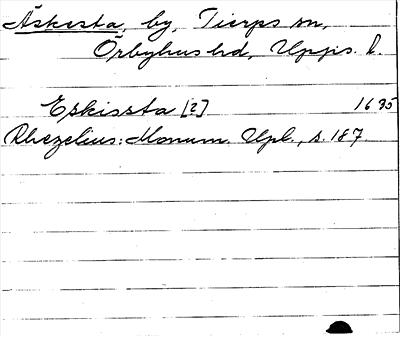 Äskesta, by, Tierps sn,
Örbyhus hd, Upps. l.
Eskissta [?] 1635
Rhezelius: Monum. Upl., s. 187.